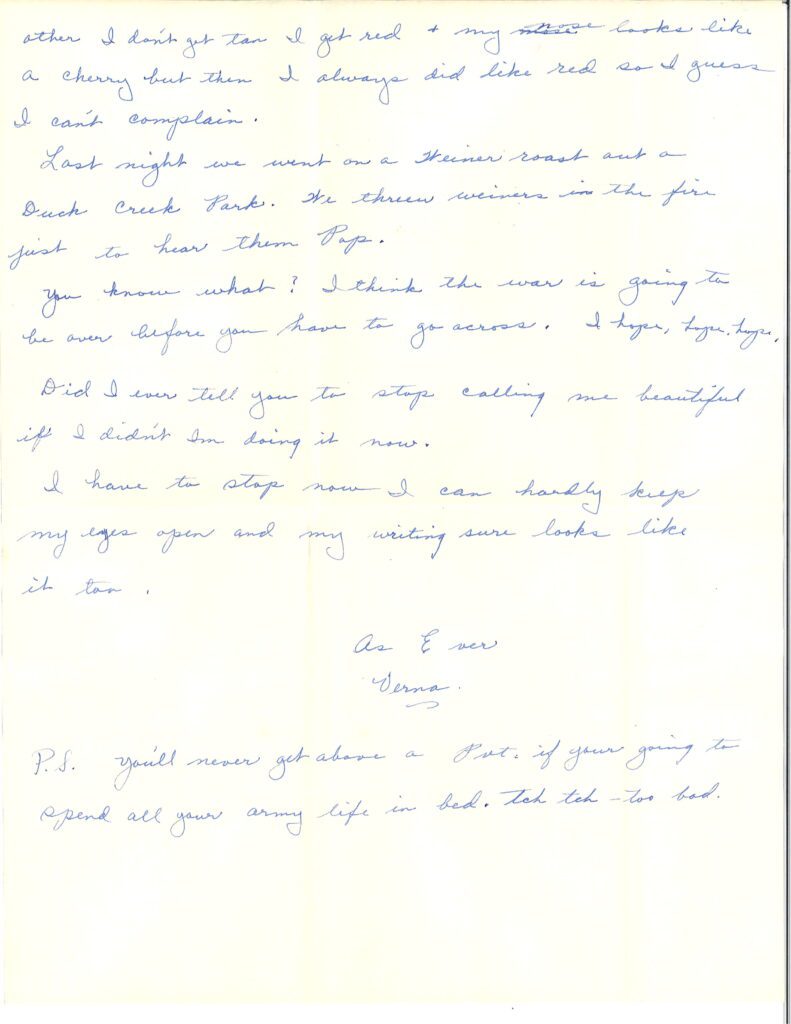 other I don't get tan I get red + my nose looks like
a cherry but then I always did like red so I guess
I can't complain.
Last night we went on a Weiner roast out a
Duck Creek Park. We threew weiners in the fire
just to hear them Pop.
You know what? I think the war is going to
be over before you have to go across. I hope, hope, hope,
Did I ever tell you to stop calling me beautiful
if I didn't Im doing it now.
I have to stop now I can hardly keep
my eyes open and my writing sure looks like
it too.
As Ever
Verna.
P.S. You'll never get above a Pvt. if your going to
spend all your army life in bed. Tch tch - too bad.